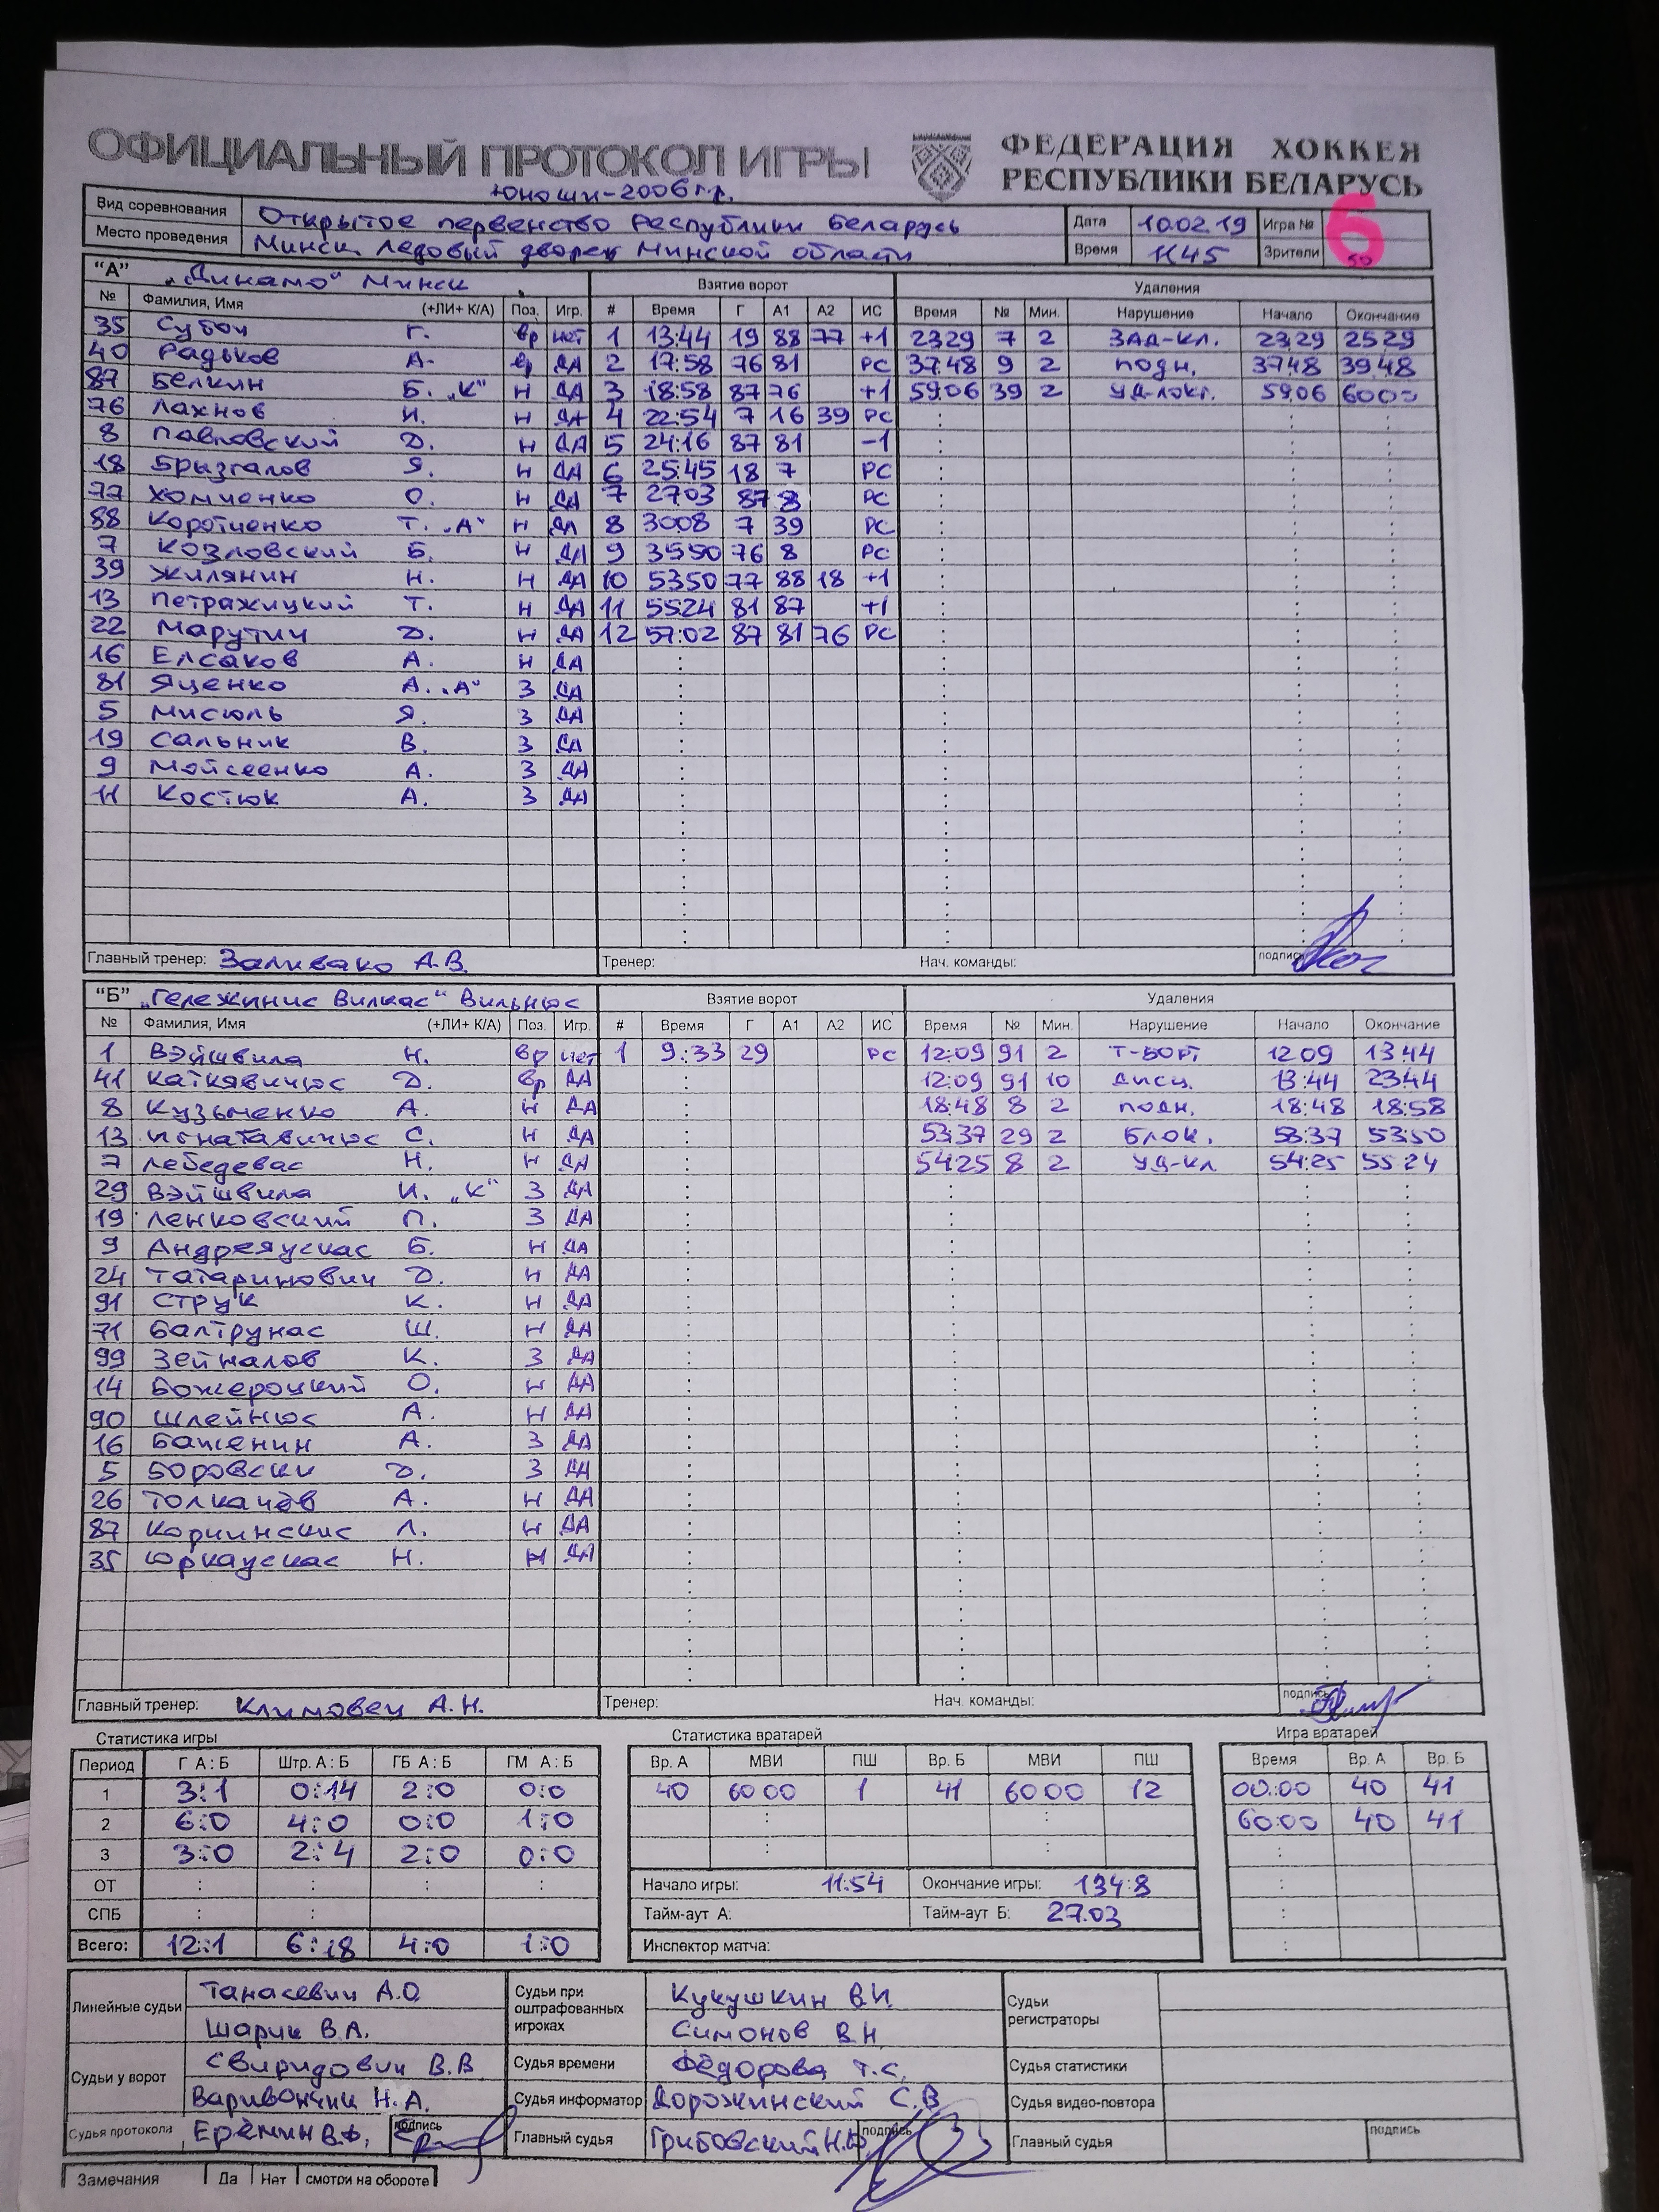 ОФИЦИАЛЬНЫЙ ПРОТОКОЛ ИГРЫ ФЕДЕРАЦИЯ ХОККЕЯ РЕСПУБЛИКИ БЕЛАРУСЬ
Юноши-2006 г.р.
Вид соревнования Открытое первенство Республики Беларусь Дата 10.02.19 Игра № 6
Место проведения Минск. Ледовый дворец Минской области Время 11:45 Зрители 50
"А" „Динамо" Минск Взятие ворот Удаления
№ Фамилия, Имя (+ЛИ+ К/А) Поз. Игр. # Время Г А1 А2 ИС Время № Мин. Нарушение Начало Окончание
35 Субоч Г. вр нет 1 13:44 19 88 77 +1 23:29 7 2 ЗАД-КЛ. 23:29 25:29
40 Радьков А. вр ДА 2 17:58 76 81 РС 37:48 9 2 подн. 37:48 39:48
87 Белкин Б. „К" Н ДА 3 18:58 87 76 +1 59:06 39 2 УД-ЛОКТ. 59:06 60:00
76 Лахнов И. Н ДА 4 22:54 7 16 39 РС
8 Павловский Д. Н ДА 5 24:16 87 81 -1
18 Брызгалов Я. Н ДА 6 25:45 18 7 РС
77 Хомченко О. Н ДА 7 27:03 87 8 РС
88 Коротченко Т. „А" Н ДА 8 30:08 7 39 РС
7 Козловский Б. Н ДА 9 35:50 76 8 РС
39 Жилянин Н. Н ДА 10 53:50 77 88 18 +1
13 Петражицкий Т. Н ДА 11 55:24 81 87 +1
22 Марутич Д. Н ДА 12 57:02 87 81 76 РС
16 Елсаков А. Н ДА
81 Яценко А. „А" З ДА
5 Мисюль Я. З ДА
19 Сальник В. З ДА
9 Мойсеенко А. З ДА
11 Костюк А. З ДА
Главный тренер: Заливако А.В. Тренер: Нач. команды: подпись
"Б" „Гележинис Вилкас" Вильнюс Взятие ворот Удаления
№ Фамилия, Имя (+ЛИ+ К/А) Поз. Игр. # Время Г А1 А2 ИС Время № Мин. Нарушение Начало Окончание
1 Вэйшвила Н. Вр нет 1 9:33 29 РС 12:09 91 2 Т-БОРТ 12:09 13:44
41 Каткявичюс Д. Вр ДА 12:09 91 10 дисц. 13:44 23:44
8 Кузьменко А. Н ДА 18:48 8 2 подн. 18:48 18:58
13 Игнатавичюс С. Н ДА 53:37 29 2 БЛОК. 53:37 53:50
7 Лебедевас Н. Н ДА 54:25 8 2 УД-КЛ 54:25 55:24
29 Вэйшвила И. „К" З ДА
19 Ленковский П. З ДА
9 Андреяускас Б. Н ДА
24 Татаринович Д. Н ДА
91 Струк К. Н ДА
71 Балтрунас Ш. Н ДА
99 Зейналов К. З ДА
14 Божероцкий О. Н ДА
90 Шлейнюс А. Н ДА
16 Баженин А. З ДА
5 Боровски Д. З ДА
26 Толкачёв А. Н ДА
87 Корчинскис Л. Н ДА
35 Юркаускас Н. Н ДА
Главный тренер: Климовец А.Н. Тренер: Нач. команды: подпись
Статистика игры Статистика вратарей Игра вратарей
Период Г А : Б Штр. А : Б ГБ А : Б ГМ А : Б Вр. А МВИ ПШ Вр. Б МВИ ПШ Время Вр. А Вр. Б
1 3:1 0:14 2:0 0:0 40 60:00 1 41 60:00 12 00:00 40 41
2 6:0 4:0 0:0 1:0 60:00 40 41
3 3:0 2:4 2:0 0:0
ОТ : : Начало игры: 11:54 Окончание игры: 134:8
СПБ : : Тайм-аут А: Тайм-аут Б: 27.03
Всего: 12:1 6:18 4:0 1:0 Инспектор матча:
Линейные судьи Танасевич А.О. Судьи при оштрафованных игроках Кукушкин В.И. Судьи регистраторы
Шарик В.А. Симонов В.Н
Судьи у ворот Свиридович В.В Судья времени Фёдорова Т.С. Судья статистики
Варивончик Н.А. Судья информатор Дорожинский С.В Судья видео-повтора
Судья протокола Ерёмин В.Ф. подпись Главный судья Грибовский Н.Ю. подпись Главный судья подпись
Замечания Да Нет смотри на обороте